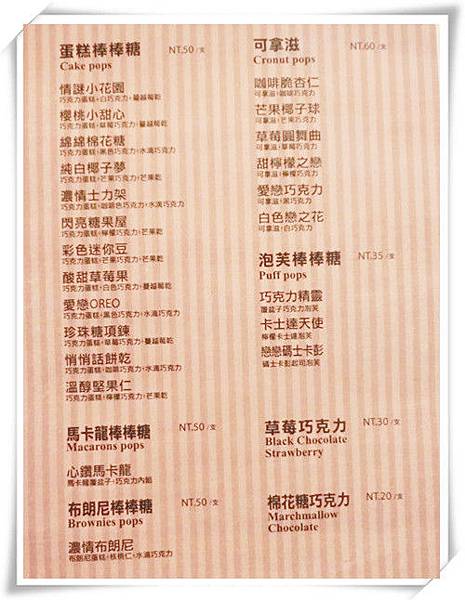 蛋糕棒棒糖 NT.50 /支
Cake pops
情謎小花園
巧克力蛋糕+白巧克力+蔓越莓乾
櫻桃小甜心
巧克力蛋糕+草莓巧克力+蔓越莓乾
綿綿棉花糖
巧克力蛋糕+黑色巧克力+水滴巧克力
純白椰子夢
巧克力蛋糕+芒果巧克力+芒果乾
濃情士力架
巧克力蛋糕+咖啡色巧克力+水滴巧克力
閃亮糖果屋
巧克力蛋糕+檸檬巧克力+芒果乾
彩色迷你豆
巧克力蛋糕+芒果巧克力+芒果乾
酸甜草莓果
巧克力蛋糕+白色巧克力+蔓越莓乾
愛戀OREO
巧克力蛋糕+黑色巧克力+水滴巧克力
珍珠糖項鍊
巧克力蛋糕+草莓巧克力+蔓越莓乾
悄悄話餅乾
巧克力蛋糕+咖啡巧克力+水滴巧克力
溫醇堅果仁
巧克力蛋糕+檸檬巧克力+芒果乾
馬卡龍棒棒糖 NT.50 /支
Macarons pops
心鑽馬卡龍
馬卡龍覆盆子+巧克力內餡
布朗尼棒棒糖 NT.50 /支
Brownies pops
濃情布朗尼
布朗尼蛋糕+核桃仁+水滴巧克力
可拿滋 NT.60 /支
Cronut pops
咖啡脆杏仁
可拿滋+咖啡巧克力
芒果椰子球
可拿滋+芒果巧克力
草莓圓舞曲
可拿滋+草莓巧克力
甜檸檬之戀
可拿滋+檸檬巧克力
愛戀巧克力
可拿滋+黑巧克力
白色戀之花
可拿滋+白巧克力
泡芙棒棒糖 NT.35 /支
Puff pops
巧克力精靈
覆盆子巧克力泡芙
卡士達天使
檸檬卡士達泡芙
戀戀碼士卡彭
碼士卡彭起司泡芙
草莓巧克力 NT.30 /支
Black Chocolate
Strawberry
棉花糖巧克力 NT.20 /支
Marchmallow
Chocolate